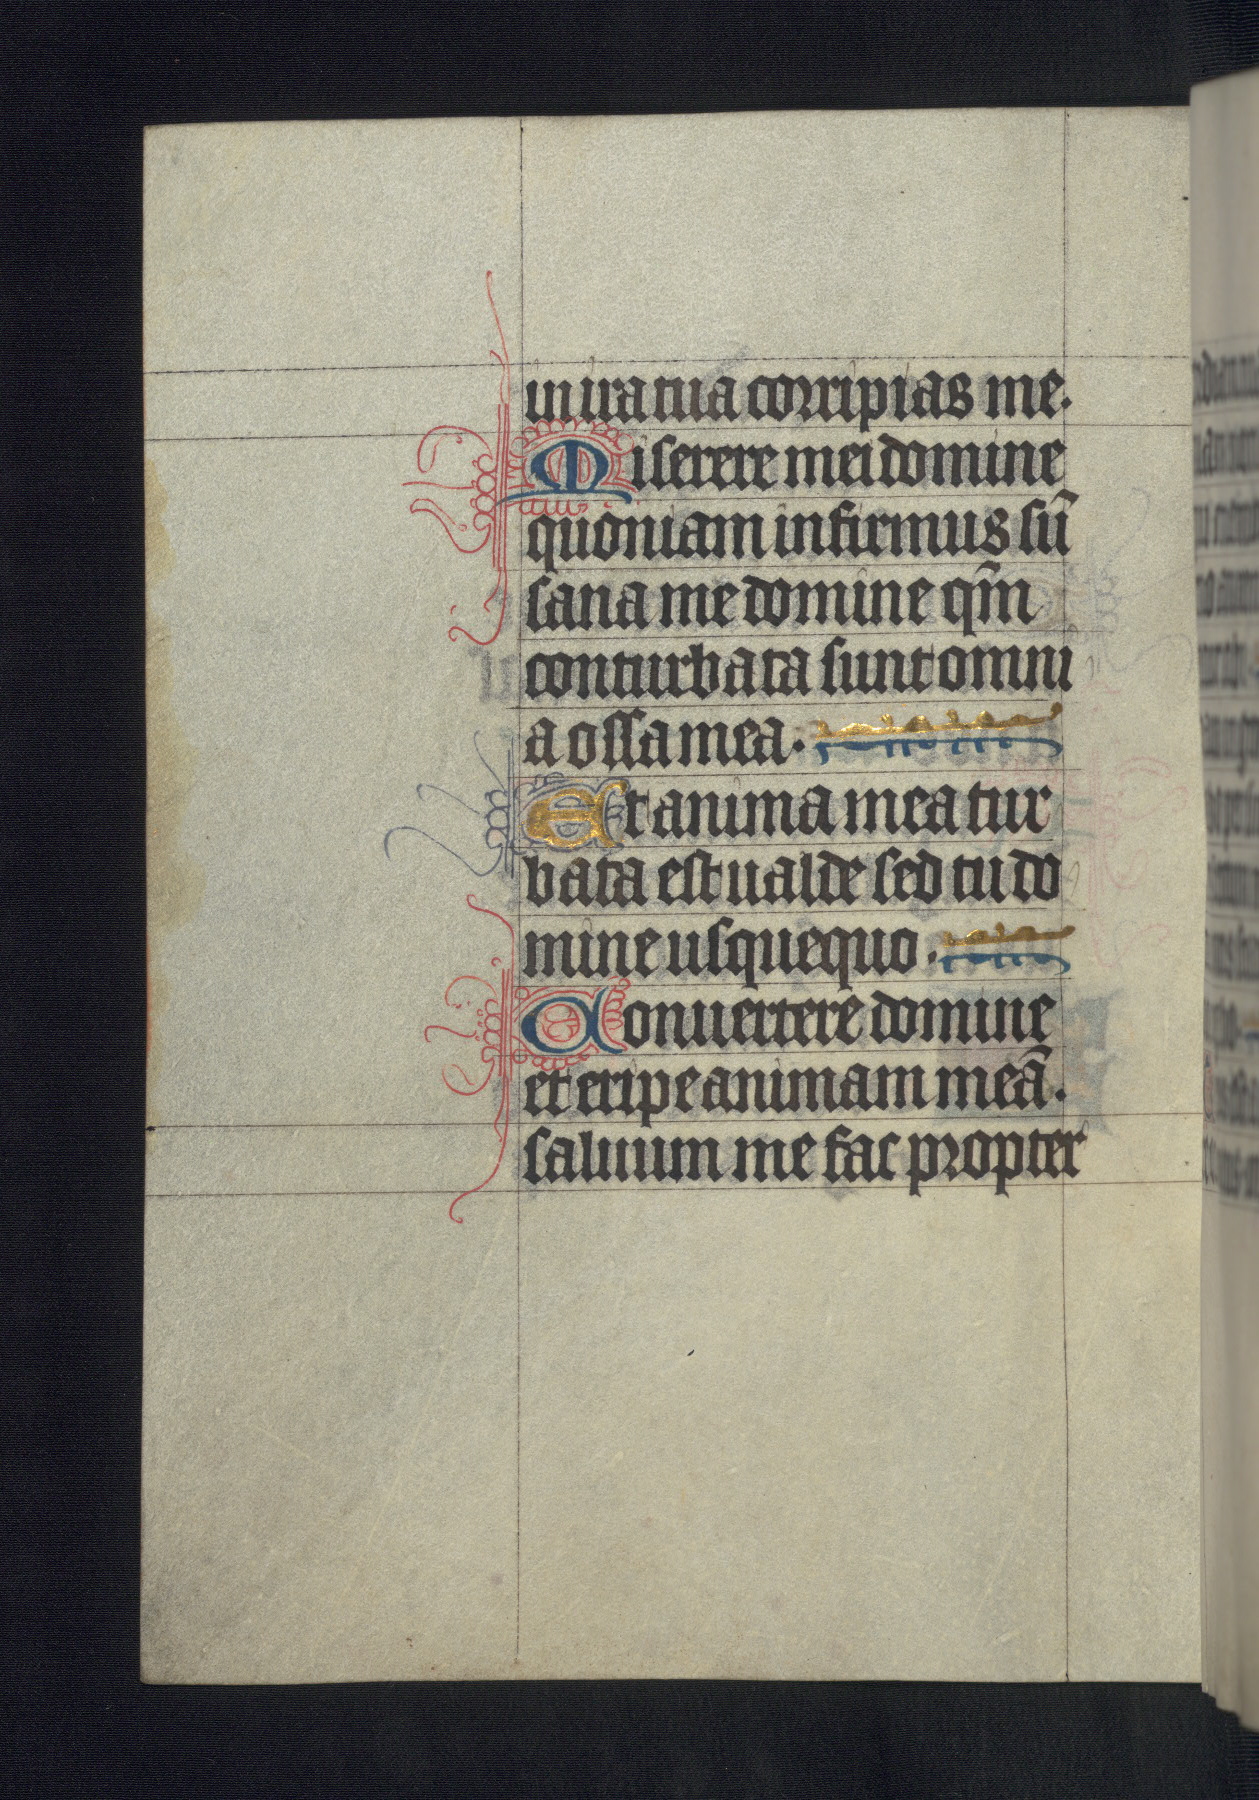 in ira tua corripias me.
Miserere mei domine
quoniam infirmus sũ
sana me domine qm̃
conturbata sunt omni
a ossa mea.
Et anima mea tur
bata est ualde sed tu do
mine usquequo.
Conuertere domine
et eripe animam meã.
saluum me fac propter